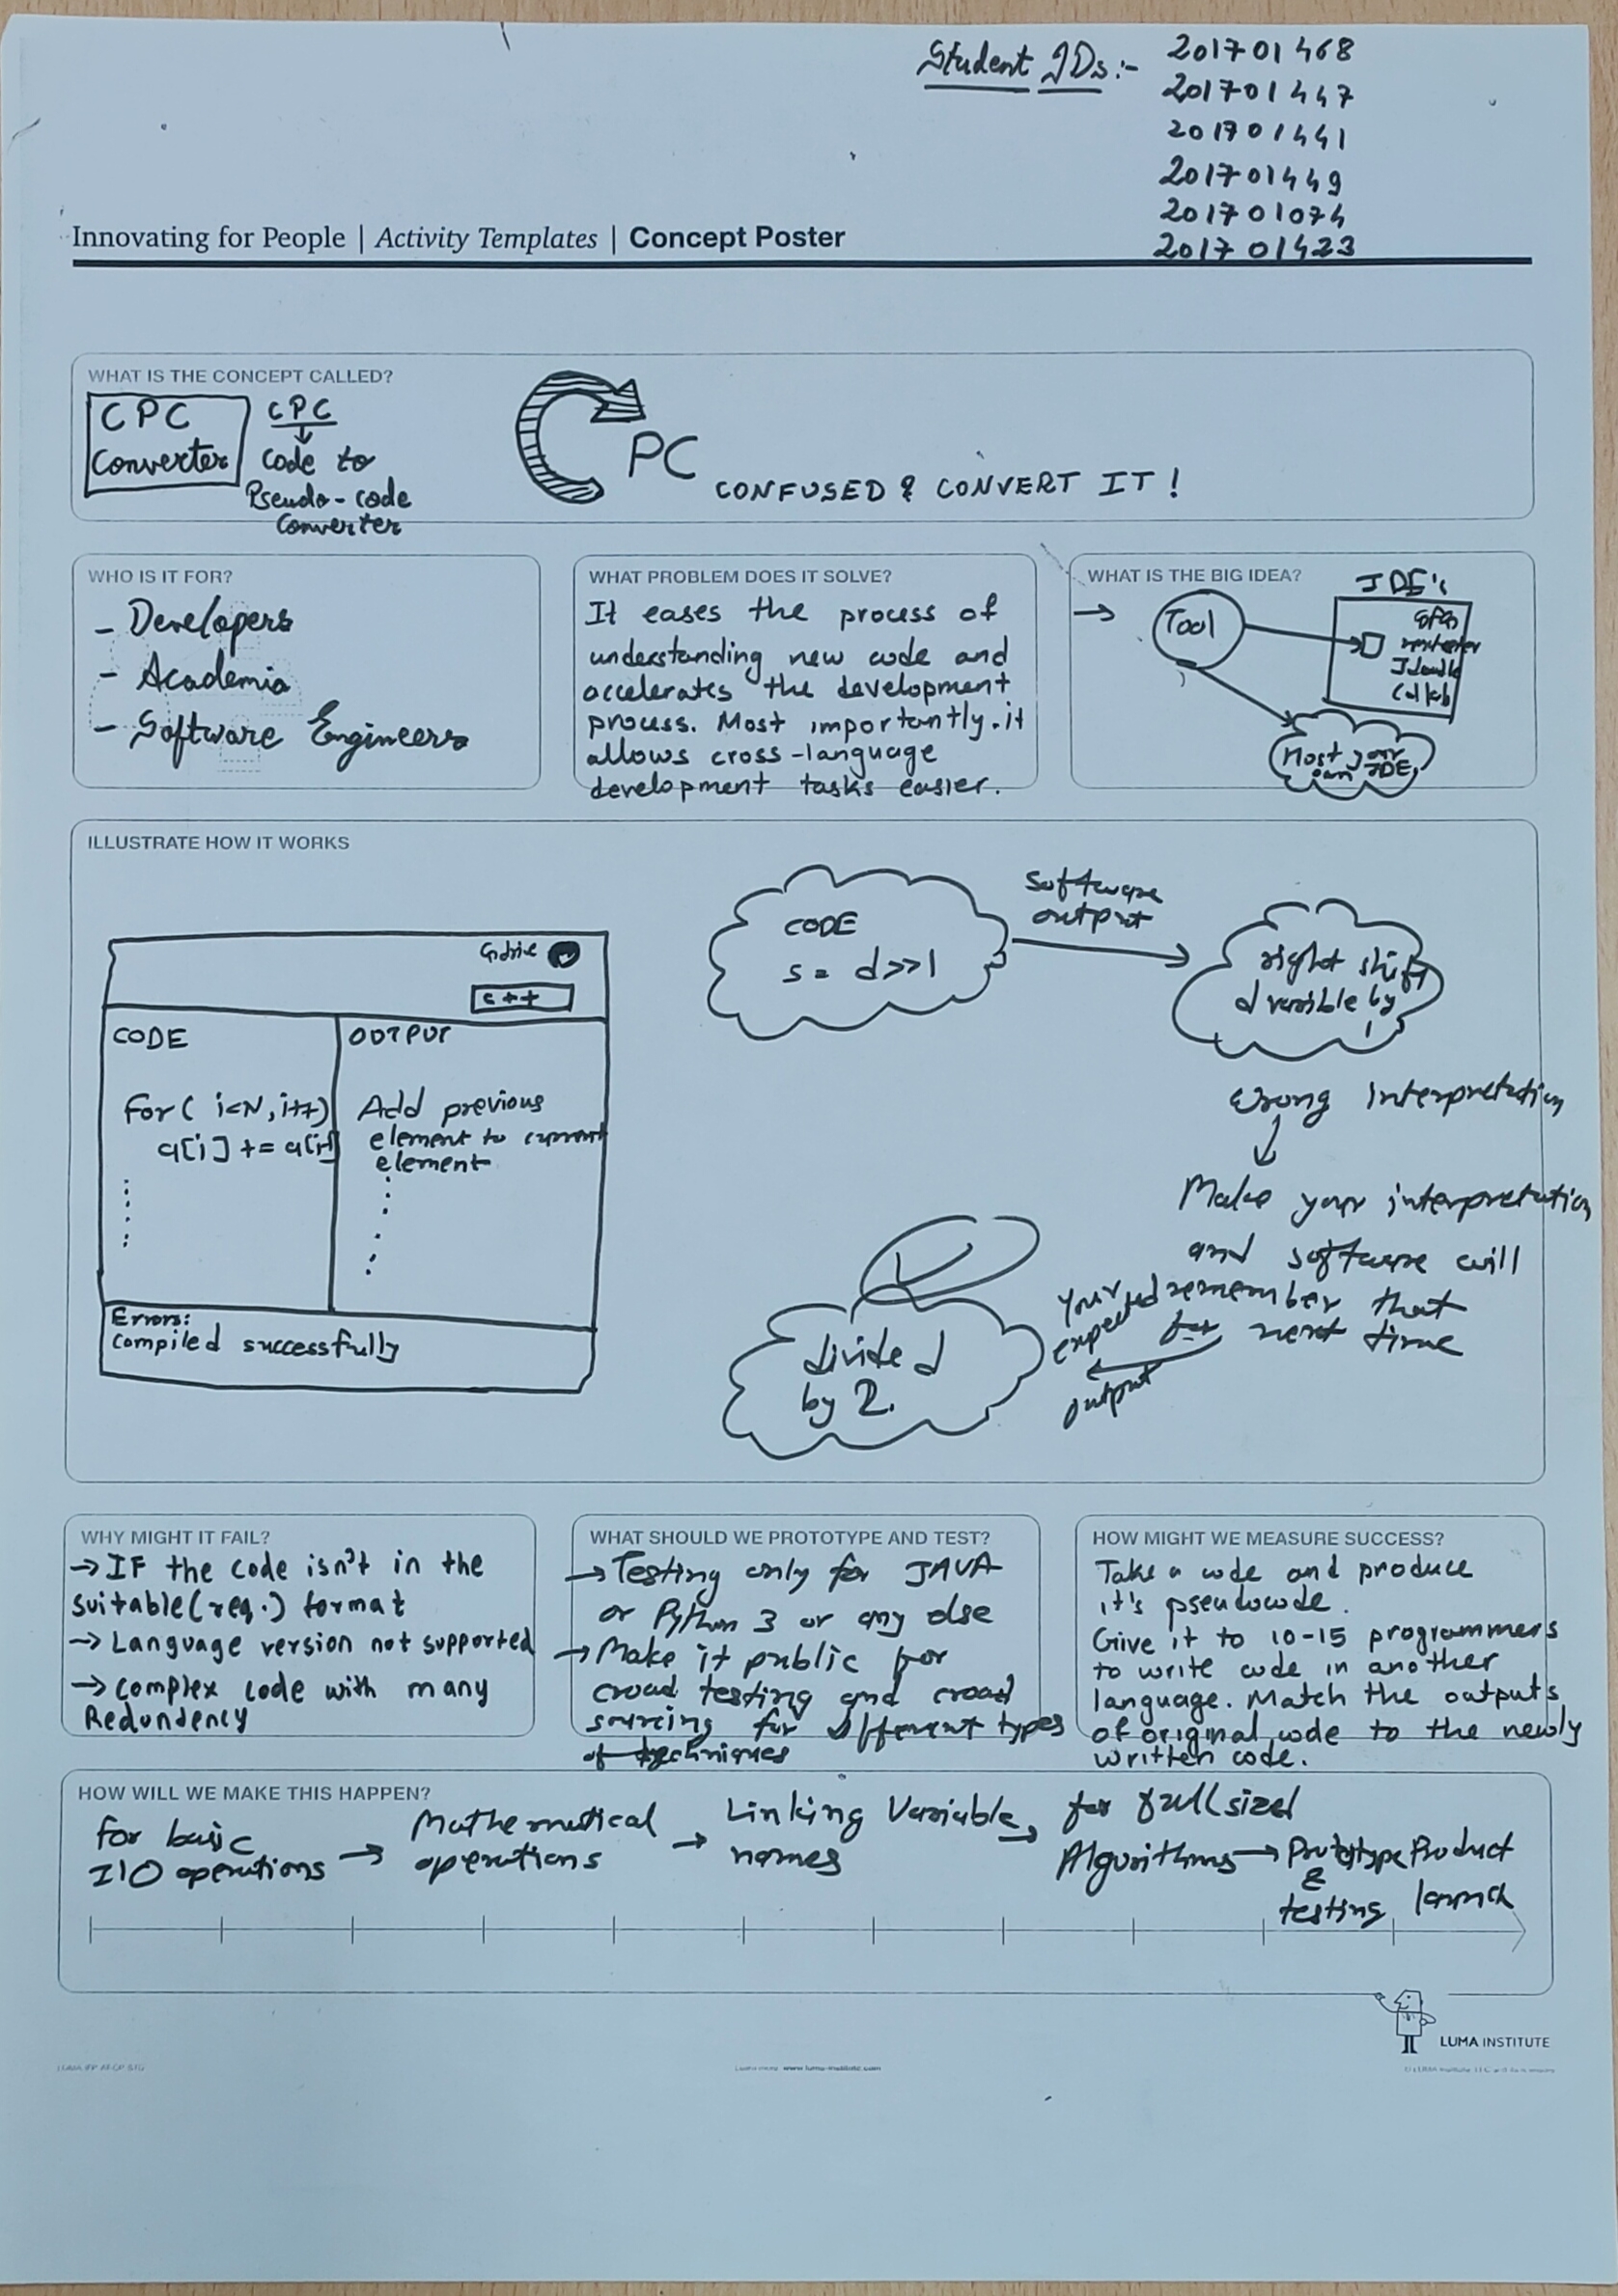 Student IDs:-
201701468
201701447
201701441
201701449
201701074
201701423
Innovating for People | Activity Templates | Concept Poster
WHAT IS THE CONCEPT CALLED?
CPC
Converter
CPC
Code to
Pseudo-code
Converter
PC
CONFUSED? CONVERT IT!
WHO IS IT FOR?
- Developers
- Academia
- Software Engineers
WHAT PROBLEM DOES IT SOLVE?
It eases the process of
understanding new code and
accelerates the development
process. Most importantly. it
allows cross-language
development tasks easier.
WHAT IS THE BIG IDEA?
→ Tool
IDE's
GFG
Host your
own IDE
ILLUSTRATE HOW IT WORKS
Gdrive
C++
CODE
OUTPUT
For( i<N, i++)
a[i] += a[i-1]
Add previous
element to current
element
Errors:
Compiled successfully
CODE
s = d>>1
Software
output
right shift
d varible by
1
Wrong Interpretation
Make your interpretation
and software will
remember that
for next time
your
expected
output
divide d
by 2.
WHY MIGHT IT FAIL?
→ IF the code isn't in the
suitable(req.) format
→ Language version not supported
→ Complex code with many
Redundency
WHAT SHOULD WE PROTOTYPE AND TEST?
→ Testing only for JAVA
or Python 3 or any else
→ Make it public for
croud testing and croud
sourcing for different types
of techniques
HOW MIGHT WE MEASURE SUCCESS?
Take a code and produce
it's pseudocode.
Give it to 10-15 programmers
to write code in another
language. Match the outputs
of original code to the newly
written code.
HOW WILL WE MAKE THIS HAPPEN?
for basic
I/O operations →
Mathematical
operations →
Linking Variable
names →
for full sized
Algorithms →
Prototype
&
testing
Product
launch
LUMA INSTITUTE
www.luma-institute.com